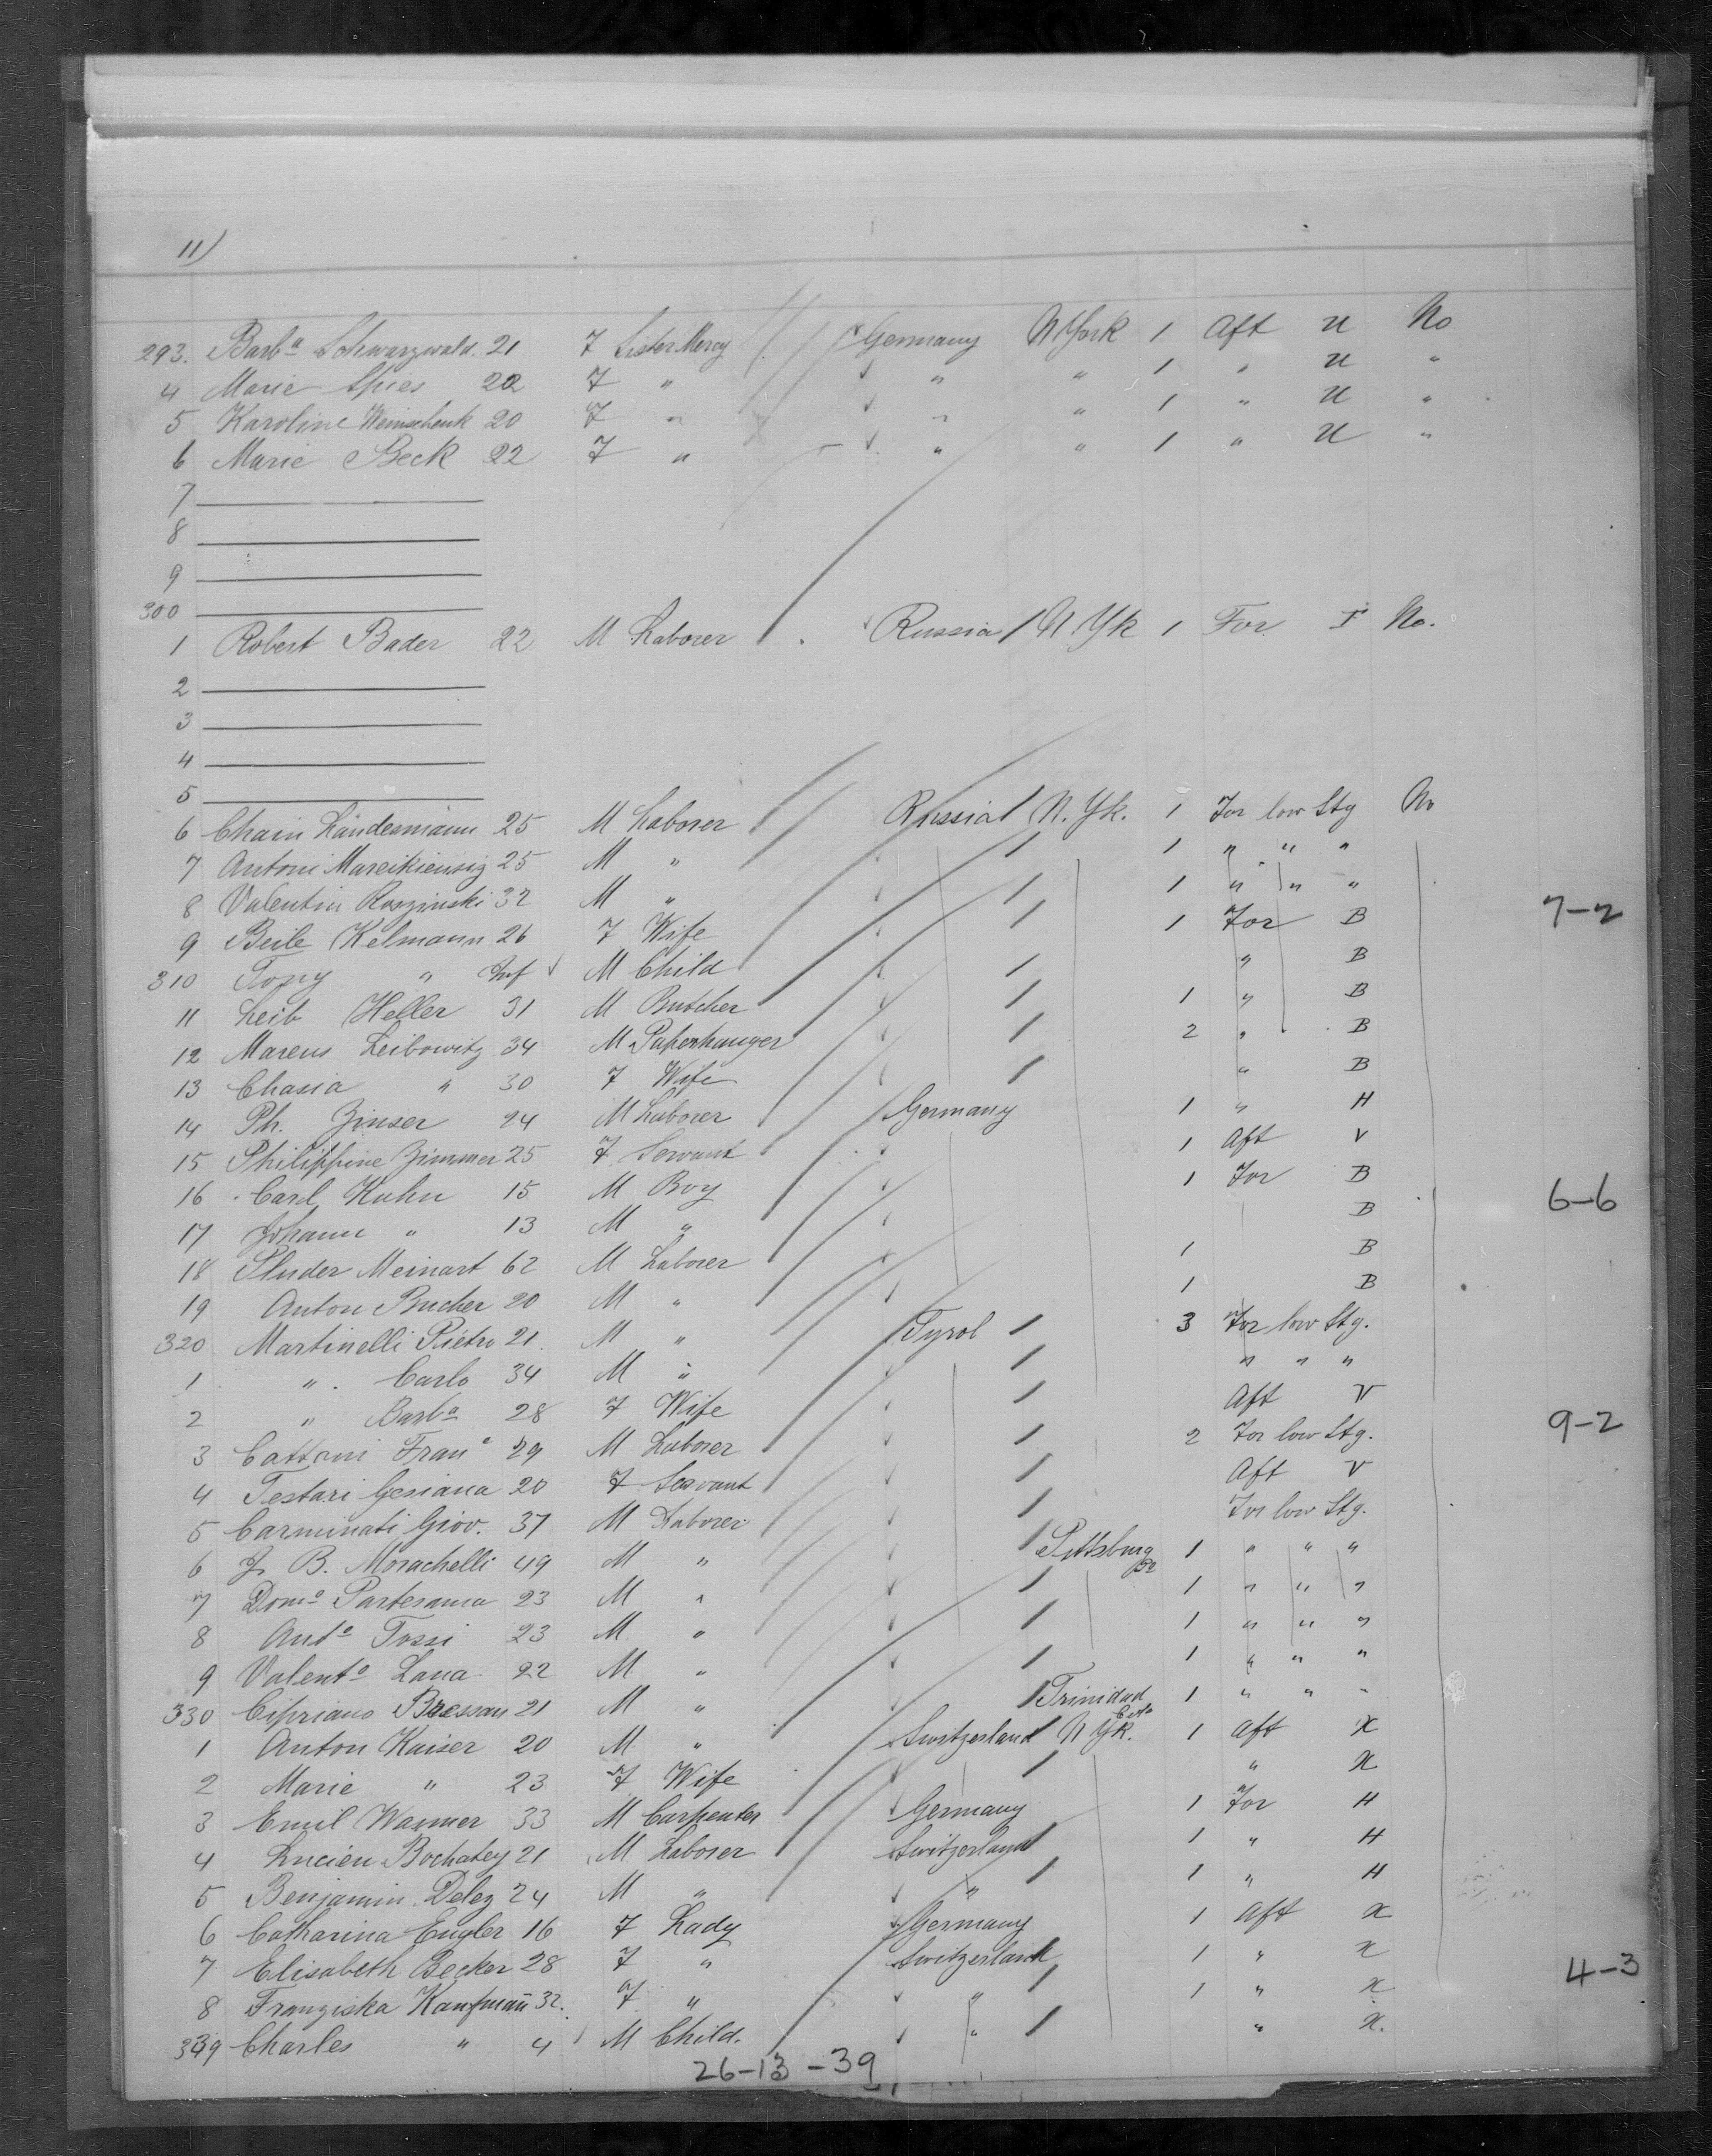 11)
293. Barbª Schwarzwald. 21 F Sister Mercy Germany N York 1 Aft U No
4 Marie Spies 22 F " " " 1 " U "
5 Karoline Weinschenk 20 F " " " 1 " U "
6 Marie Beck 22 F " " " 1 " U "
7
8
9
300
1 Robert Bader 22 M Laborer Russia N. Yk 1 For F No.
2
3
4
5
6 Chain Landesmann 25 M Laborer Russia N. Yk. 1 For low Stg No
7 Antoni 25 M " 1 " " "
8 Valentin Roszinski 32 M " 1 " " "
9 Beile Kelmann 26 F Wife 1 For B 7-2
310 Tony " Inf M Child " B
11 Leib Heller 31 M Butcher 1 " B
12 Marcus Leibowitz 34 M Paperhanger 2 " B
13 Chasia " 30 F Wife " B
14 Ph. Zinser 24 M Laborer Germany 1 " H
15 Philippine Zimmer 25 F Servant 1 Aft V
16 Carl Kuhn 15 M Boy 1 For B 6-6
17 Johann " 13 M " B
18 Meinart 62 M Laborer 1 B
19 Anton Bucher 20 M " 1 B
320 Martinelli Pietro 21. M " Tyrol 3 For low Stg.
1 " Carlo 34 M " " " "
2 " Barbª 28 F Wife Aft V 9-2
3 Cattoni Franº 29 M Laborer 2 For low Stg.
4 Testari Gesiana 20 F Servant Aft V
5 Carminati Giov. 37 M Laborer For low Stg.
6 J. B. Morachelli 49 M " Pittsburg Pa 1 " " "
7 Domº Partesana 23 M " 1 " " "
8 Antº Tossi 23 M " 1 " " "
9 Valentº Lana 22 M " 1 " " "
330 Cipriano Bressan 21 M " Trinidad Colo 1 " " "
1 Anton Kaiser 20 M " Switzerland N Yk. 1 Aft X
2 Marie " 23 F Wife " X
3 Emil Wanner 33 M Carpenter Germany 1 For H
4 Lucien Bochatey 21 M Laborer Switzerland 1 " H
5 Benjamin Delez 24 M " " 1 " H
6 Catharina Engler 16 F Lady Germany 1 Aft X
7 Elisabeth Becker 28 F " Switzerland 1 " X 4-3
8 Franziska Kaufmañ 32. F " " 1 " X
339 Charles " 4 M Child. " " X.
26-13-39